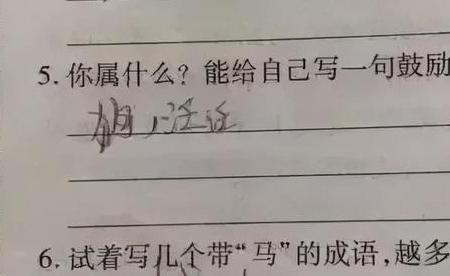 5. 你属什么？能给自己写一句鼓励
6. 试着写几个带“马”的成语,越多